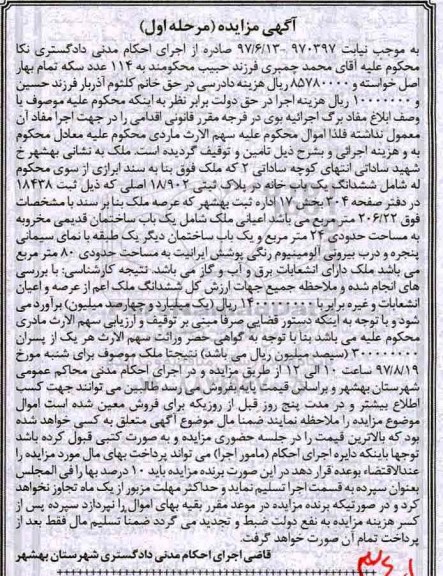 آگهی مزایده (مرحله اول)
به موجب نیابت ۹۷۰۳۹۷ -۹۷/۶/۱۳ صادره از اجرای احکام مدنی دادگستری نکا
محکوم علیه آقای محمد چمبری فرزند حبیب محکومند به ۱۱۴ عدد سکه تمام بهار
اصل خواسته و ۸۵۷۸۰۰۰۰ ریال هزینه دادرسی در حق خانم کلثوم آذربار فرزند حسین
و ۱۰۰۰۰۰۰۰ ریال هزینه اجرا در حق دولت برابر نظر به اینکه محکوم علیه موصوف با
وصف ابلاغ مفاد برگ اجرائیه بوی در فرجه مقرر قانونی اقدامی را در جهت اجرا مفاد آن
معمول نداشته فلذا اموال محکوم علیه سهم الارث ماردی محکوم علیه معادل محکوم
به و هزینه اجرائی و بشرح ذیل تامین و توقیف گردیده است. ملک به نشانی بهشهر خ
شهید ساداتی انتهای کوچه ساداتی ۲ که ملک فوق بنا به سند ابرازی از سوی محکوم
له شامل ششدانگ یک باب خانه در پلاک ثبتی ۱۸/۹۰۲ اصلی که ذیل ثبت ۱۸۴۳۸
در دفتر صفحه ۳۰۴ بخش ۱۷ اداره ثبت بهشهر که عرصه ملک بنا بر سند با مشخصات
فوق ۲۰۶/۲۲ متر مربع می باشد اعیانی ملک شامل یک باب ساختمان قدیمی مخروبه
به مساحت حدودی ۲۴ متر مربع و یک باب ساختمان دیگر یک طبقه با نمای سیمانی
پنجره و درب بیرونی آلومینیوم رنگی پوشش ایرانیت به مساحت حدودی ۸۰ متر مربع
می باشد ملک دارای انشعابات برق و آب و گاز می باشد. نتیجه کارشناسی: با بررسی
های انجام شده و ملاحظه جمیع جهات ارزش کل ششدانگ ملک اعم از عرصه و اعیان
انشعابات و غیره برابر با ۱۴۰۰۰۰۰۰۰۰ ریال (یک میلیارد و چهارصد میلیون) برآورد می
شود و با توجه به اینکه دستور قضایی صرفا مبنی بر توقیف و ارزیابی سهم الارث مادری
محکوم علیه می باشد بنا با توجه به گواهی حصر وراثت سهم الارث هر یک از پسران
۳۰۰۰۰۰۰۰۰ (سیصد میلیون ریال می باشد) نتیجتا ملک موصوف برای شنبه مورخ
۹۷/۸/۱۹ ساعت ۱۰ الی ۱۲ از طریق مزایده و در اجرای احکام مدنی محاکم عمومی
شهرستان بهشهر و براساس قیمت پایه بفروش می رسد طالبین می توانند جهت کسب
اطلاع بیشتر و در مدت پنج روز قبل از روزیکه برای فروش معین شده است اموال
موضوع مزایده را ملاحظه نمایند ضمنا مال موضوع آگهی متعلق به کسی خواهد شده
بود که بالاترین قیمت را در جلسه حضوری مزایده و به صورت کتبی قبول کرده باشد
توجها باینکه دایره اجرای احکام (مامور اجرا) می تواند پرداخت بهای مال مورد مزایده را
عندالاقتضاء بوعده قرار دهد در این صورت برنده مزایده باید ۱۰ درصد بها را فی المجلس
بعنوان سپرده به قسمت اجرا تسلیم نماید و حداکثر مهلت مزبور از یک ماه تجاوز نخواهد
کرد و در صورتیکه برنده مزایده در موعد مقرر بقیه بهای اموال را نپردازد سپرده پس از
کسر هزینه مزایده به نفع دولت ضبط و تجدید می گردد ضمنا تسلیم مال فقط بعد از
پرداخت تمام آن صورت خواهد گرفت.
قاضی اجرای احکام مدنی دادگستری شهرستان بهشهر